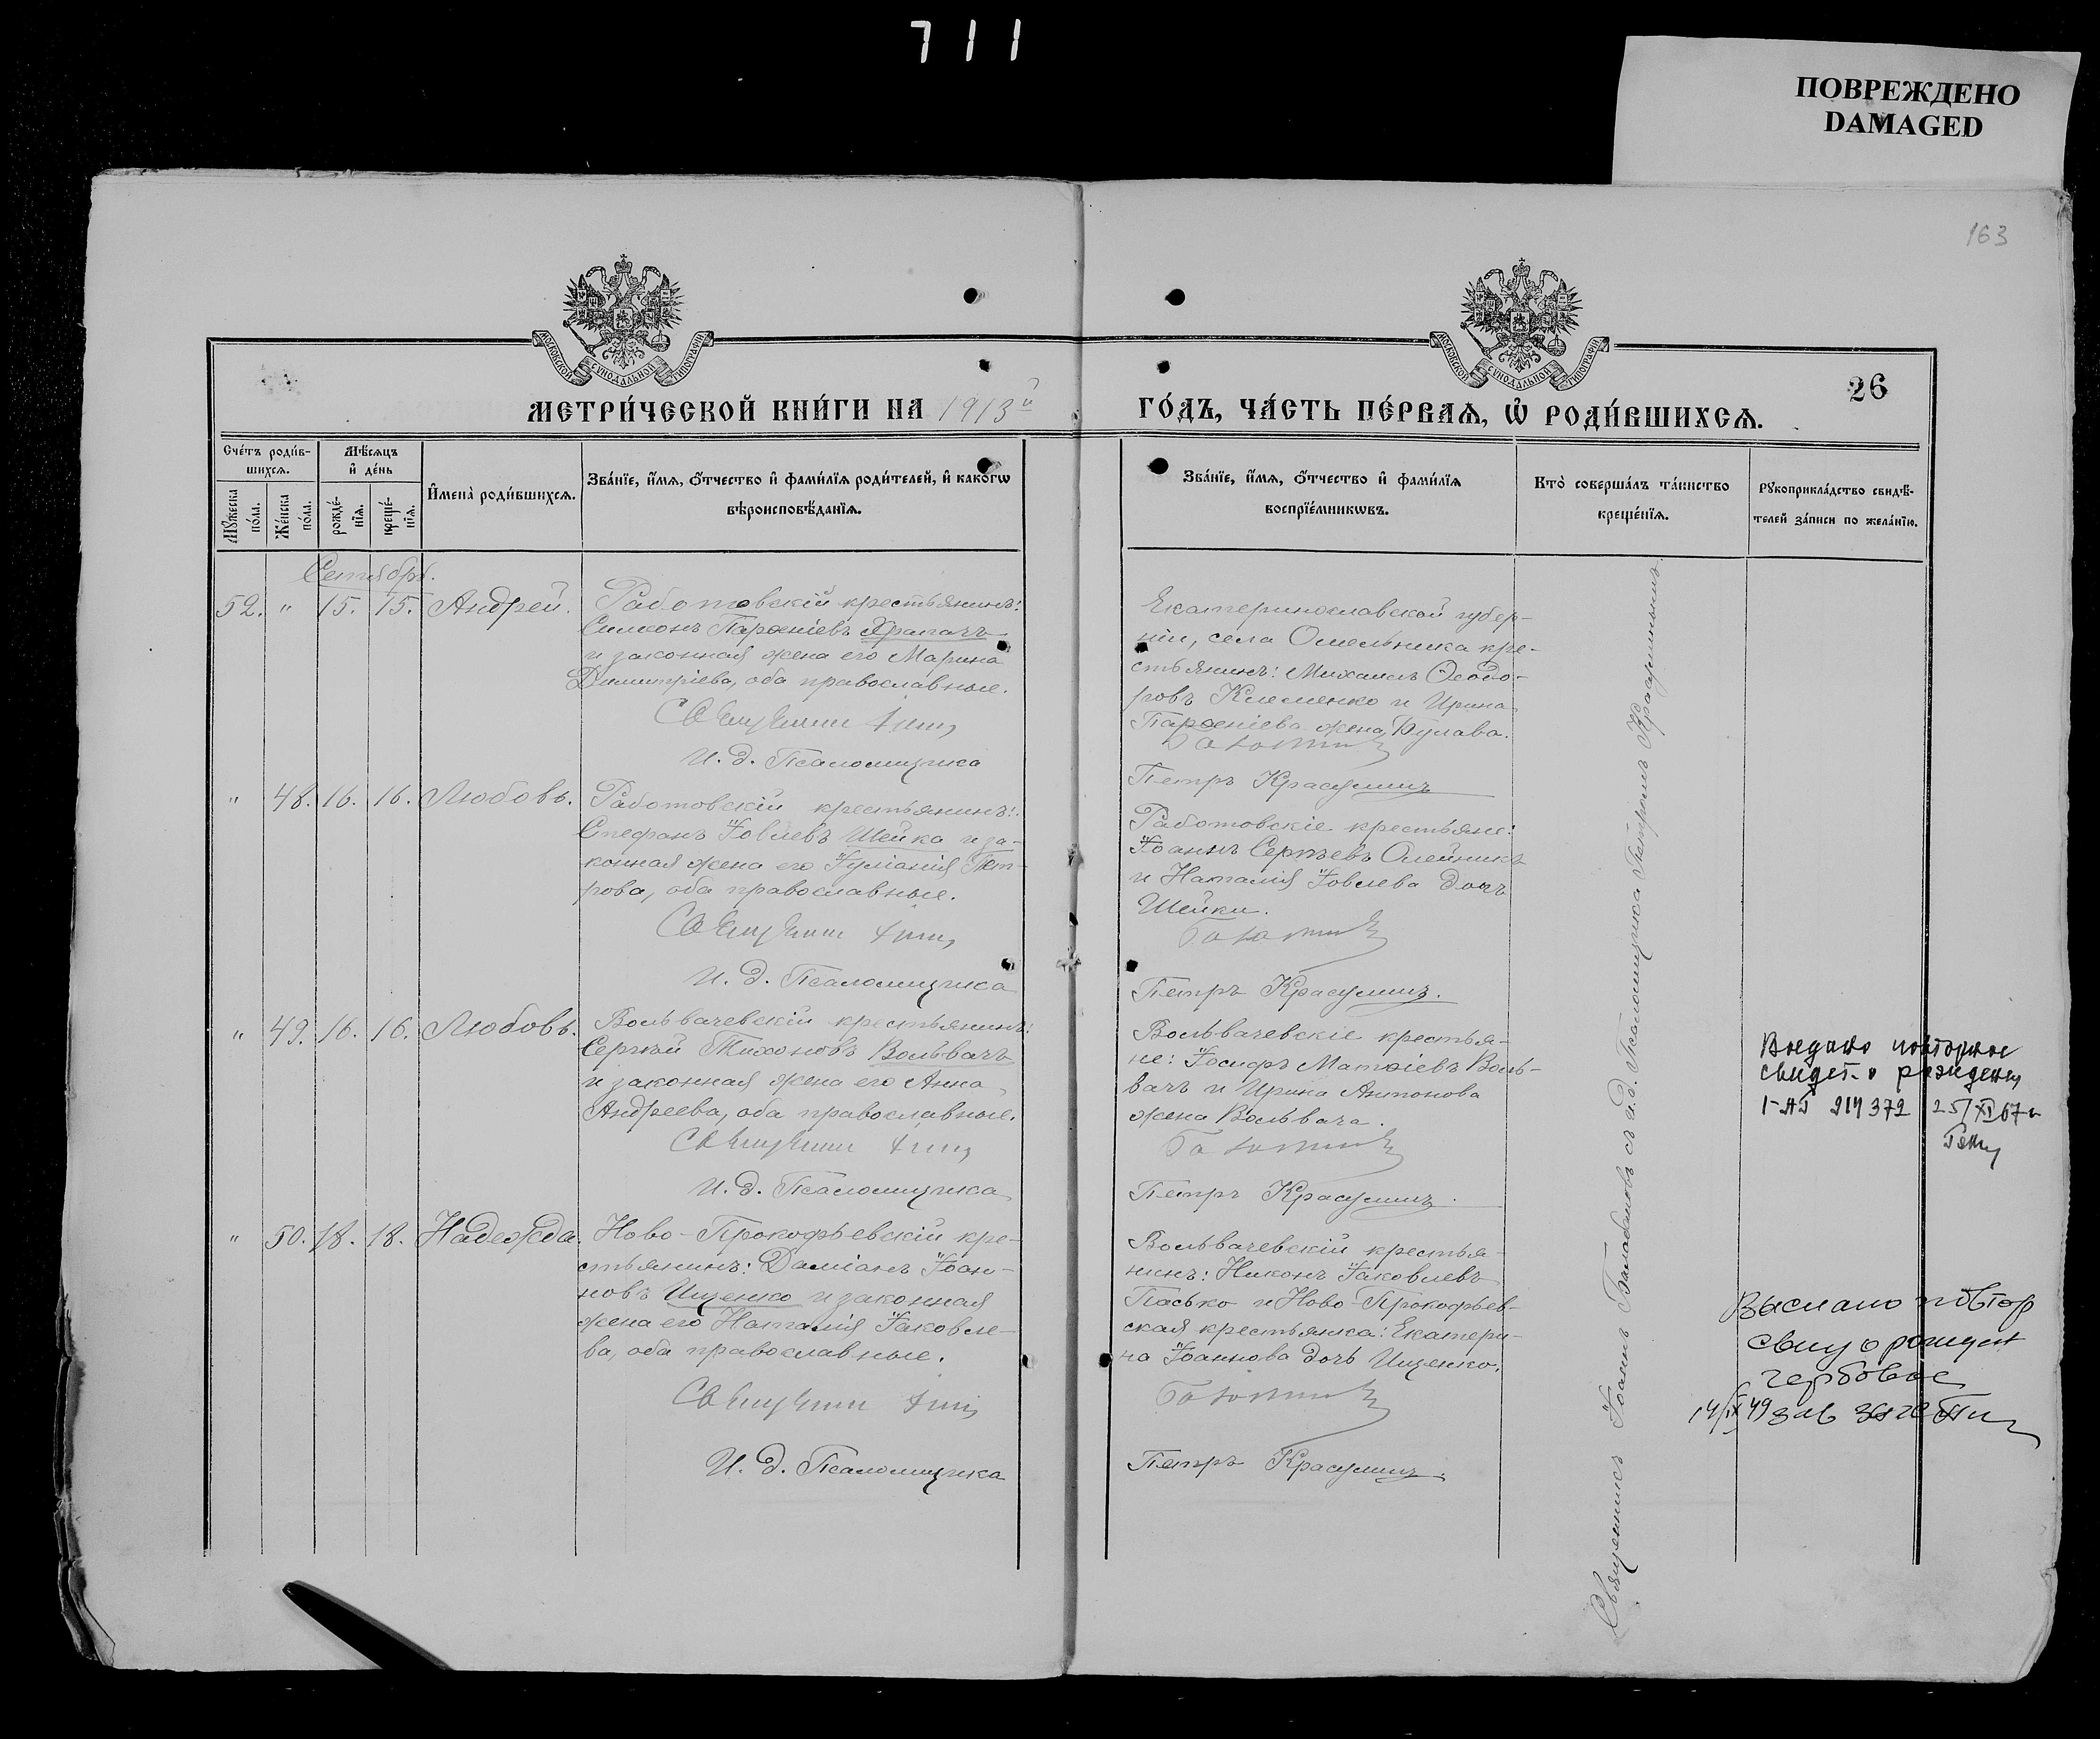 711
ПОВРЕЖДЕНО
DAMAGED
163
МОСКОВСКОЙ СѴНОДАЛЬНОЙ ТИПОГРАФІИ
МОСКОВСКОЙ СѴНОДАЛЬНОЙ ТИПОГРАФІИ
26
МЕТРИ́ЧЕСКОЙ КНИ́ГИ НА 1913й
ГО́ДЪ, ЧА́СТЬ ПЕ́РВАѦ, Ѡ҆ РОДИ́ВШИХСѦ.
Сче́тъ роди́в-
шихсѧ.
Мꙋ́жеска
по́ла.
Же́нска
по́ла.
Мѣ́сѧцъ
и҆ де́нь
рожде́-
нїѧ.
креще́-
нїѧ.
И҆мена̀ роди́вшихсѧ.
Зва́нїе, и҆́мѧ, ѻ҆́тчество и҆ фами́лїѧ роди́телей, и҆ како́гѡ
вѣроисповѣ́данїѧ.
Зва́нїе, и҆́мѧ, ѻ҆́тчество и҆ фами́лїѧ
воспрїе́мникѡвъ.
Кто̀ соверша́лъ та́инство
креще́нїѧ.
Рꙋкоприкла́дство свидѣ́-
телей за́писи по жела́нїю.
Сентябрь.
52. " 15. 15. Андрей.
Работовскій крестьянинъ:
Симеонъ Парѳеніевъ Храпачъ
и законная жена его Марина
Димитріева, оба православные.
И. д. Псаломщика
Екатеринославской губер-
ніи, села Омельника кре-
стьянинъ: Михаилъ Ѳеодо-
ровъ Клеменко и Ирина
Парѳеніева жена Булава.
Петръ Красуминъ
" 48. 16. 16. Любовь.
Работовскій крестьянинъ:
Стефанъ Іовлевъ Шейка и за-
конная жена его Іуліанія Пет-
рова, оба православные.
И. д. Псаломщика
Работовскіе крестьяне:
Іоаннъ Сергѣевъ Олейникъ
и Наталія Іовлева дочь
Шейки.
Петръ Красуминъ.
" 49. 16. 16. Любовь.
Вольвачевскій крестьянинъ:
Сергѣй Тихоновъ Вольвачъ
и законная жена его Анна
Андреева, оба православные.
И. д. Псаломщика
Вольвачевскіе крестья-
не: Іосифъ Матѳіевъ Воль-
вачъ и Ирина Антонова
жена Вольвача.
Петръ Красуминъ.
Выдано повторное
свидет. о рождении
I-АП 214372 25/XI 67 г
" 50. 18. 18. Надежда.
Ново-Прокофьевскій кре-
стьянинъ: Даміанъ Іоан-
новъ Ищенко и законная
жена его Наталія Іаковле-
ва, оба православные.
И. д. Псаломщика
Вольвачевскій крестья-
нинъ: Никонъ Іаковлевъ
Пасько и Ново-Прокофьев-
ская крестьянка: Екатери-
на Іоаннова дочь Ищенко.
Петръ Красуминъ.
Выслано повтор
свид о рожден
гербовое
14/IX 49 зав
Священникъ Іоаннъ Балабановъ съ и.д. Псаломщика Петромъ Красуминымъ.